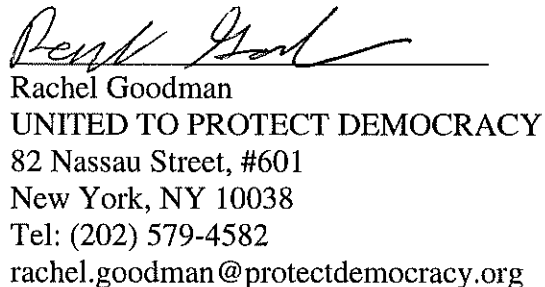 Rachel Goodman
UNITED TO PROTECT DEMOCRACY
82 Nassau Street, #601
New York, NY 10038
Tel: (202) 579-4582
rachel.goodman@protectdemocracy.org